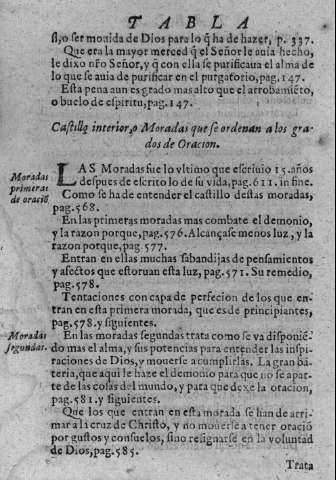 TABLA
si, o ser moalda de Dios para lo q̃ ha de hazer, p. 337.
Que era la mayor merced q̃ el Señor le auia hecho,
le dixo nr̃o Señor, y q̃ con ella se purificaua el alma de
lo que se auia de purificar en el purgatorio, pag. 147.
Esta pena aun es grado mas alto que el arrobamiẽto,
o buelo de espiritu, pag. 147.
Castillo interior, o Moradas que se ordenan a los gra
dos de Oracion.
Moradas
primeras
de oraciõ
LAS Moradas fue lo vltimo que escriuio 15. años
despues de escrito lo de su vida, pag. 611. in fine.
Como se ha de entender el castillo destas moradas,
pag. 568.
En las primeras moradas mas combate el demonio,
y la razon porque, pag. 576. Alcançase menos luz, y la
razon porque, pag. 577.
Entran en ellas muchas sabandijas de pensamientos
y afectos que estoruan esta luz, pag. 571. Su remedio,
pag. 578.
Tentaciones con capa de perfecion de los que en-
tran en esta primera morada, que es de principiantes,
pag. 578. y siguientes.
Moradas
segundas.
En las moradas segundas trata como se va disponiẽ-
do mas el alma, y sus potencias para entender las inspi-
raciones de Dios, y mouerse a cumplirlas. La gran ba-
teria, que aqui le haze el demonio para que no se apar-
te de las cosas del mundo, y para que dexe la oracion,
pag. 581. y siguientes.
Que los que entran en esta morada se han de arri-
mar a la cruz de Christo, y no mouerse a tener oraciõ
por gustos y consuelos, sino resignarse en la voluntad
de Dios, pag. 585.
Trata